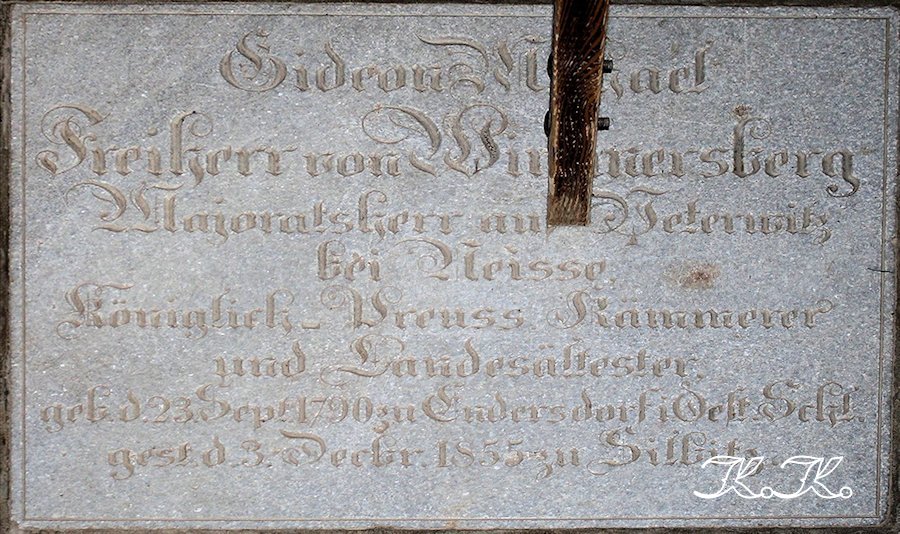 Gideon Michael
Freiherr von Wimmersberg
Majoratsherr auf Peterwitz
bei Neisse,
Königlich-Preuss. Kämmerer
und Landesältester,
geb. d 23. Sept. 1790 zu Endersdorf i Oest. Schl.
gest. d. 3. Decbr. 1855 zu Silbitz.
K.K.